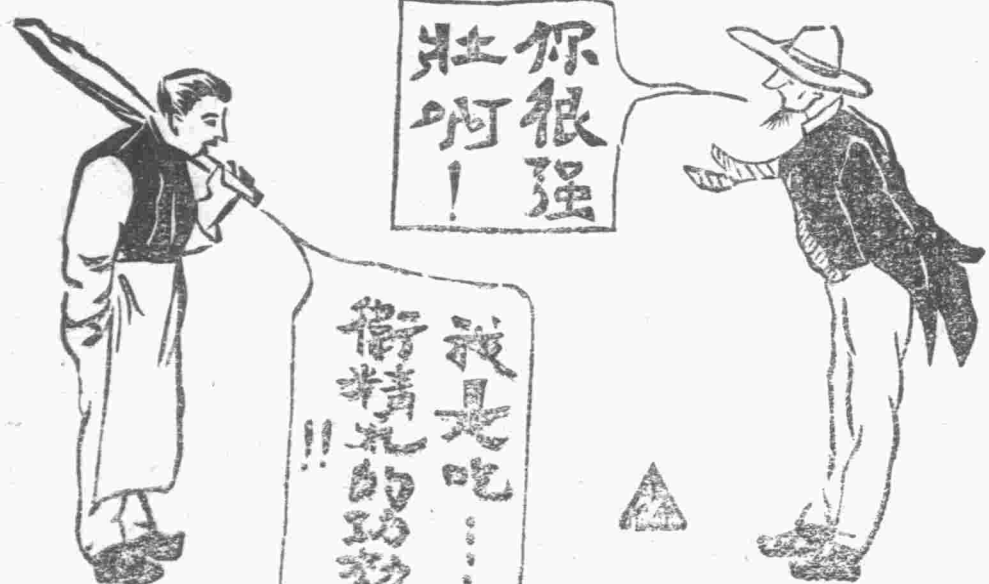 你很强
壯啊!
我是吃……
衛精丸的功
!!